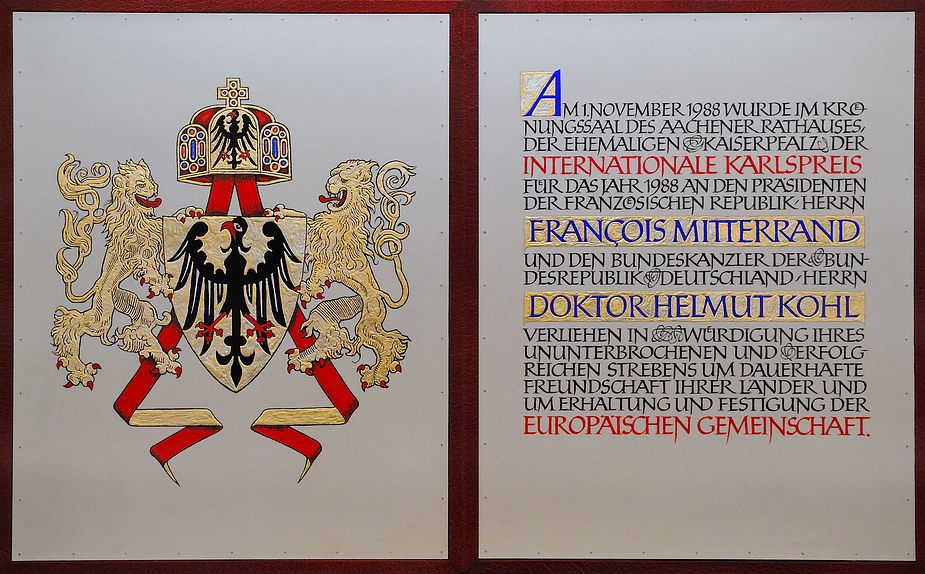 AM 1. NOVEMBER 1988 WURDE IM KRÖ-
NUNGSSAAL DES AACHENER RATHAUSES,
DER EHEMALIGEN KAISERPFALZ, DER
INTERNATIONALE KARLSPREIS
FÜR DAS JAHR 1988 AN DEN PRÄSIDENTEN
DER FRANZÖSISCHEN REPUBLIK HERRN
FRANÇOIS MITTERRAND
UND DEN BUNDESKANZLER DER BUN-
DESREPUBLIK DEUTSCHLAND, HERRN
DOKTOR HELMUT KOHL
VERLIEHEN IN WÜRDIGUNG IHRES
UNUNTERBROCHENEN UND ERFOLG-
REICHEN STREBENS UM DAUERHAFTE
FREUNDSCHAFT IHRER LÄNDER UND
UM ERHALTUNG UND FESTIGUNG DER
EUROPÄISCHEN GEMEINSCHAFT.